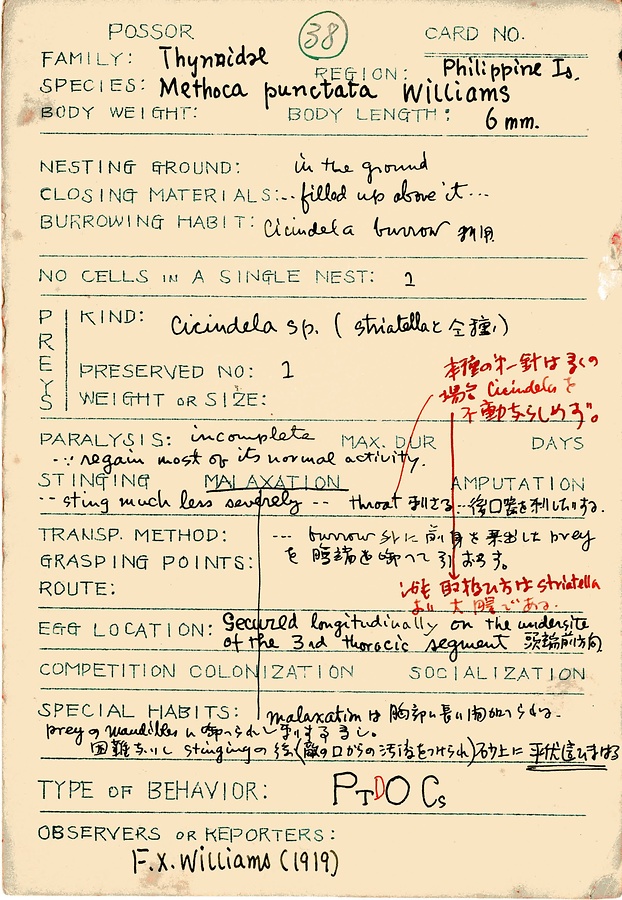 POSSOR 38 CARD NO.
FAMILY: Thynnidae
REGION: Philippine Is.
SPECIES: Methoca punctata Williams
BODY WEIGHT: BODY LENGTH: 6 mm.
NESTING GROUND: in the ground
CLOSING MATERIALS: -- filled up above it ---
BURROWING HABIT: Cicindela burrow 利用
NO CELLS IN A SINGLE NEST: 1
PREYS
KIND: Cicindela sp. ( striatellaと 仝種)
PRESERVED NO: 1
WEIGHT OR SIZE:
本種の 針は多くの
場合 Cicindelaを
不動ならしめず。
PARALYSIS: incomplete MAX. DUR DAYS
-- regain most of its normal activity.
STINGING MALAXATION AMPUTATION
-- sting much less severely -- throat 刺さる
TRANSP. METHOD: --- burrow 外に prey
GRASPING POINTS: を
ROUTE:
取扱ひ方は striatella
より大膽である.
EGG LOCATION: Secured longitudinally on the underside
of the 3rd thoracic segment 頭端前方向
COMPETITION COLONIZATION SOCIALIZATION
SPECIAL HABITS: malaxation は胸部に長い間加へられる.
prey の mandibles に
stinging の後 砂上に
TYPE OF BEHAVIOR: PTDO Cs
OBSERVERS OR REPORTERS:
F.X. Williams (1919)